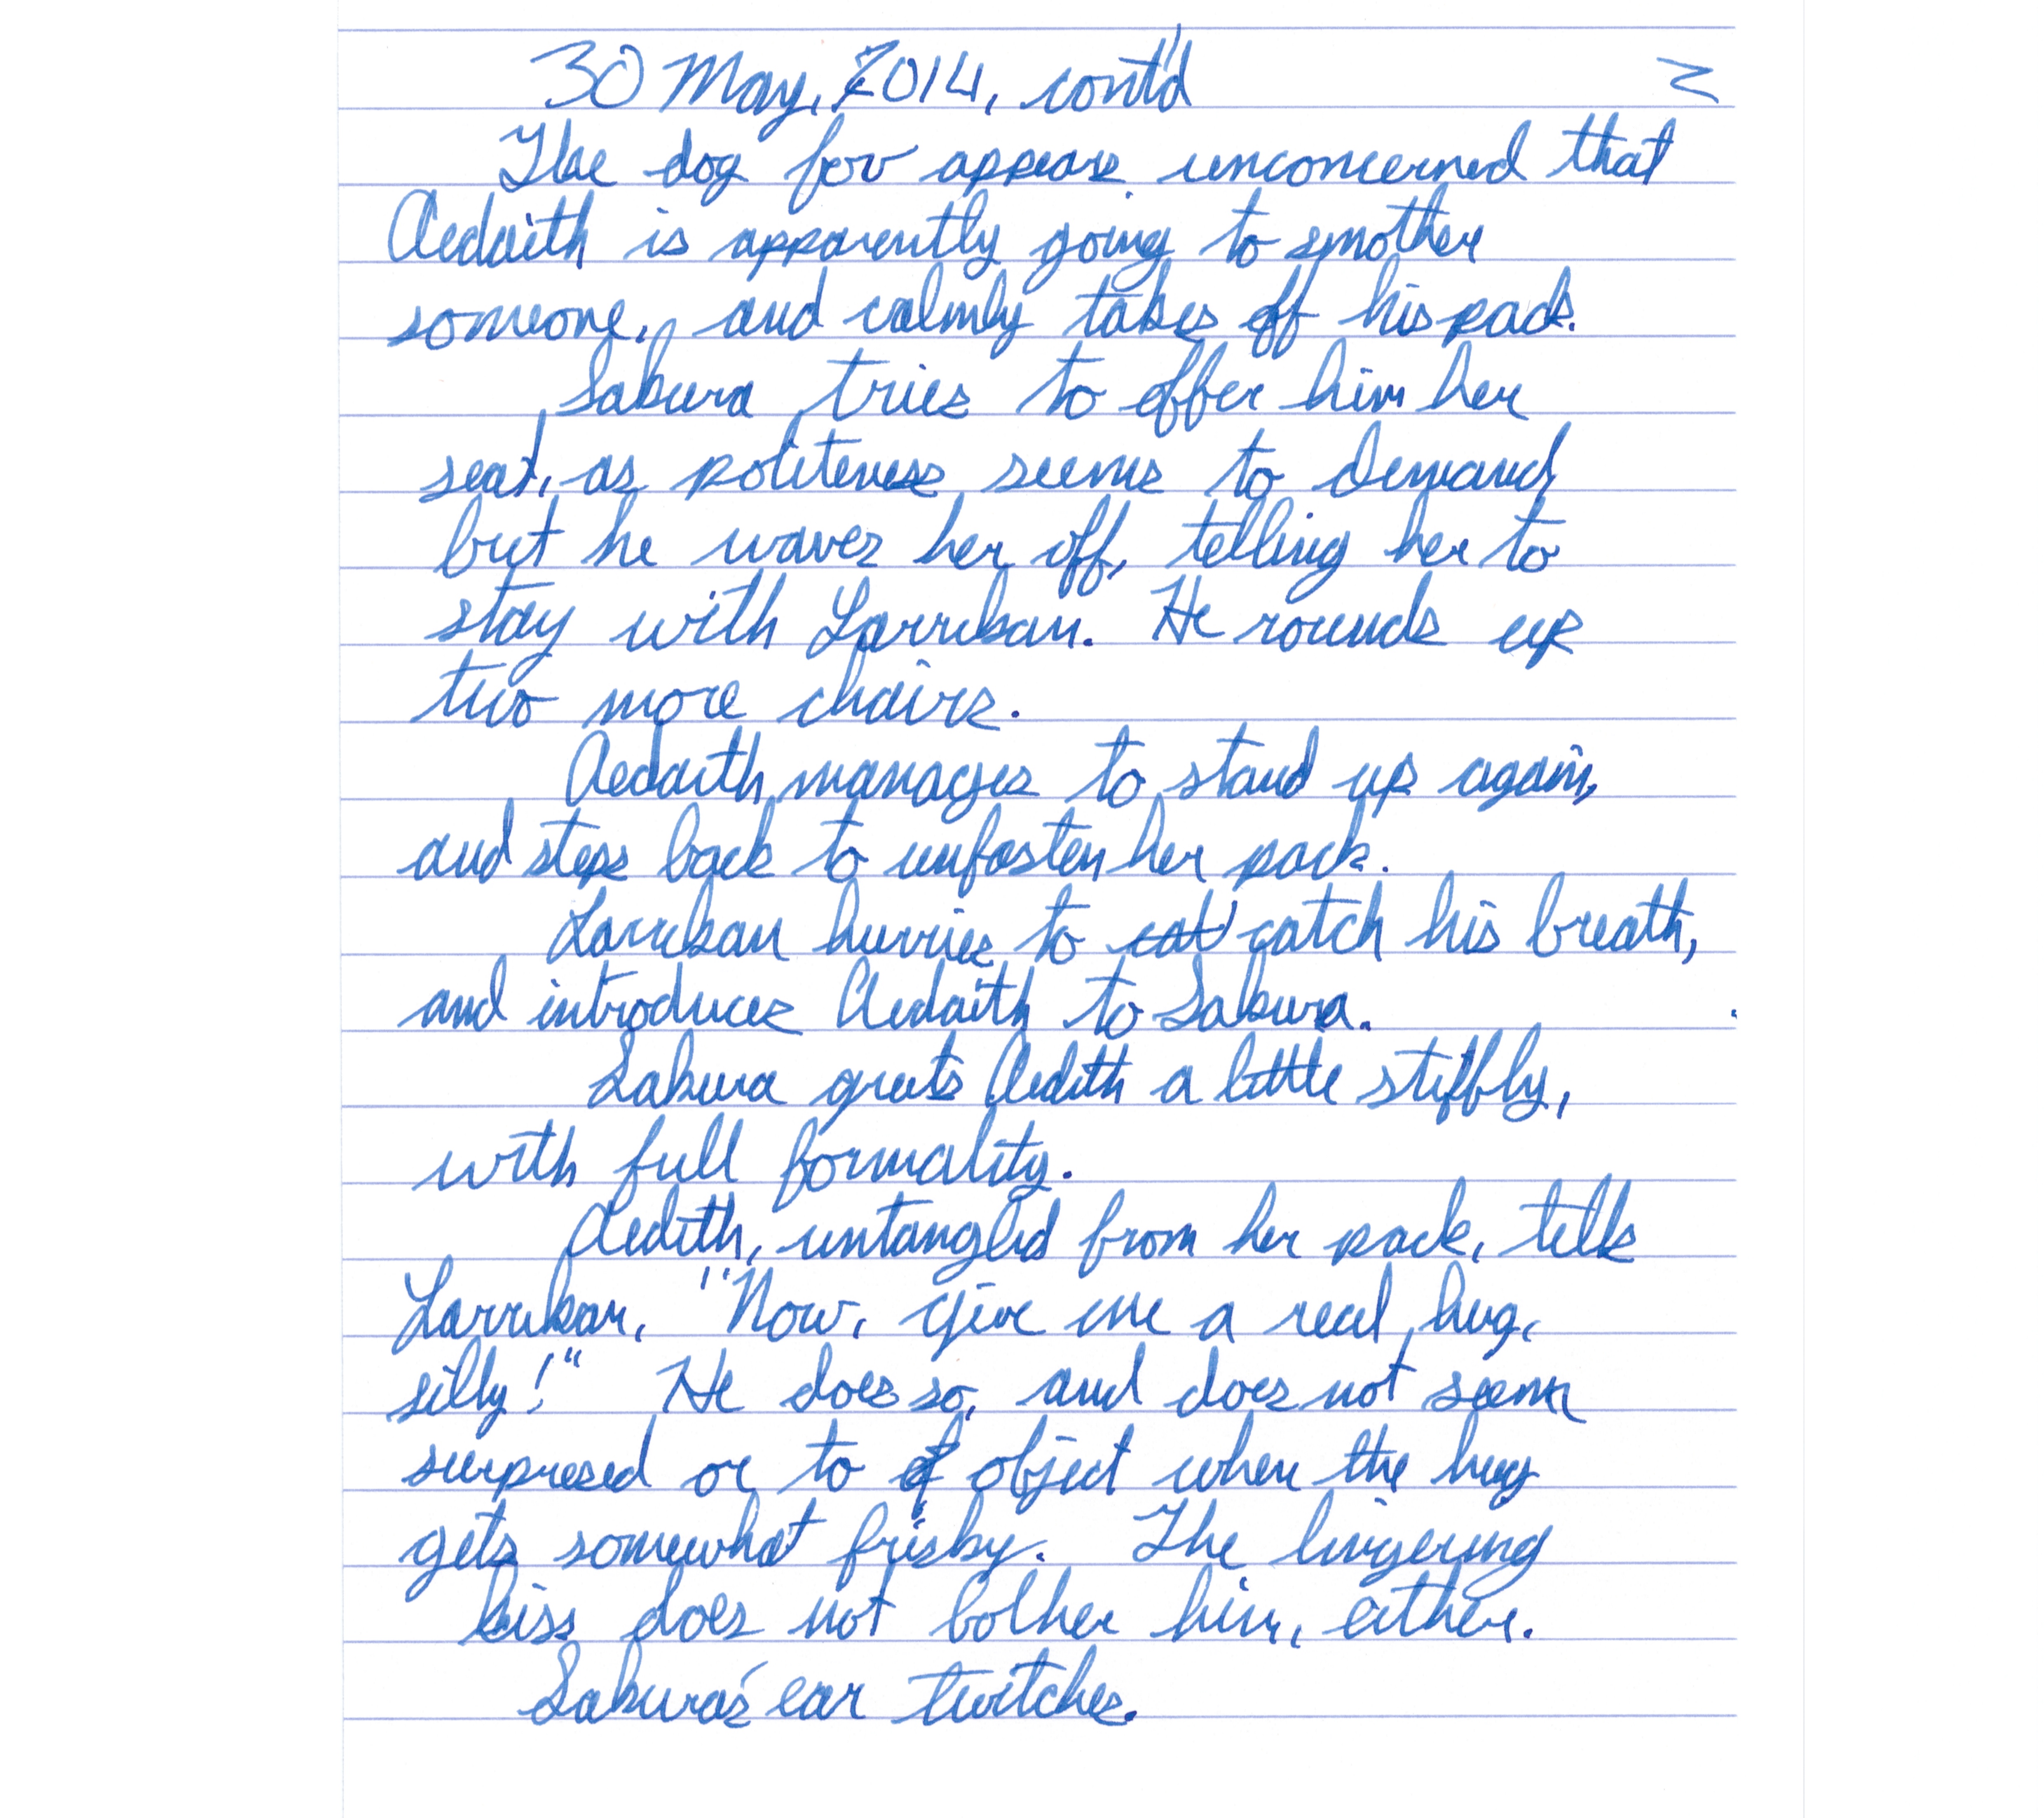 30 May, 2014, cont'd 2
The dog fov appears unconcerned that
Aedaith is apparently going to smother
someone, and calmly takes off his pack.
Sakura tries to offer him her
seat, as politeness seems to demand,
but he waves her off, telling her to
stay with Larrikan. He rounds up
two more chairs.
Aedaith manages to stand up again,
and steps back to unfasten her pack.
Larrikan hurries to cat catch his breath,
and introduces Aedaith to Sakura.
Sakura greets Aedith a little stiffly,
with full formality.
Aedith, untangled from her pack, tells
Larrikan, "Now, give me a real hug,
silly!" He does so, and does not seem
surpresed or to of object when the hug
gets somewhat frisky. The lingering
kiss does not bother him, either.
Sakura's ear twitches.